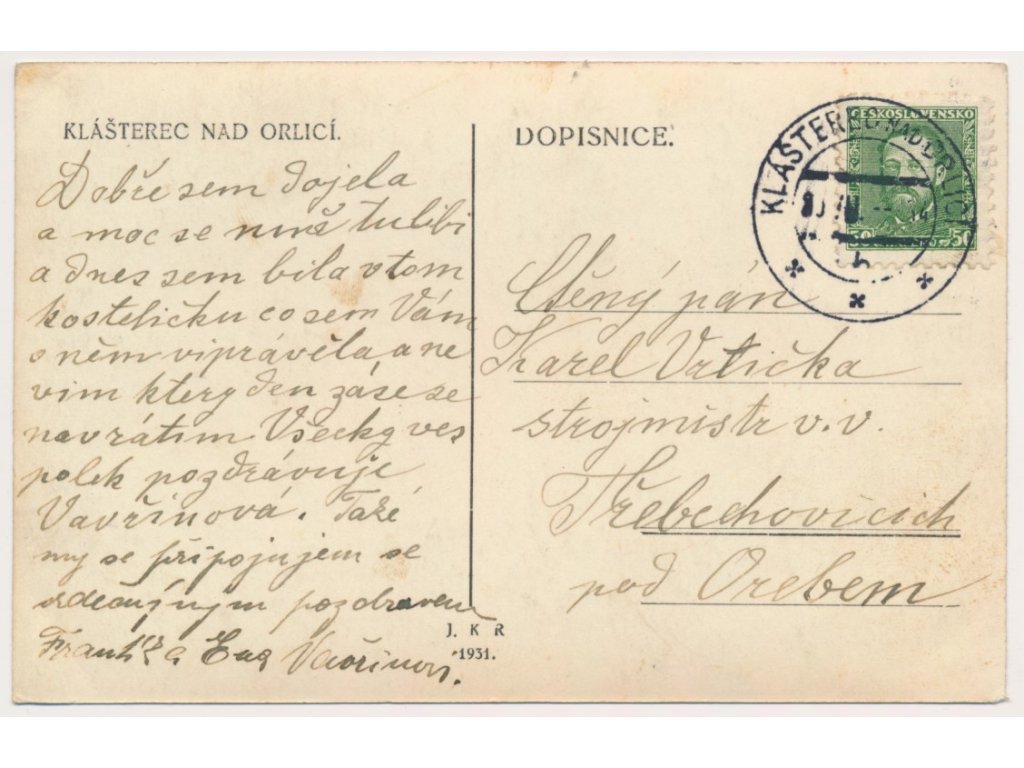 KLÁŠTEREC NAD ORLICÍ.
Dobře sem dojela
a moc se mňe tulibi
a dnes sem bila v tom
kosteličku co sem Vám
o něm viprávěla, a ne
vim ktery den záse se
navrátim Všecky ves
polek pozdrávuje
Vavřinová. Také
my se připojujem se
srdečným pozdravem
Vavřinovi.
J. K R
1931.
DOPISNICE.
ČESKOSLOVENSKO
50 50
KLÁŠTEREC NAD ORLICÍ
b
Ctěný pán
Karel Vrtička
strojmistr v. v.
Třebechovicích
pod Orebem